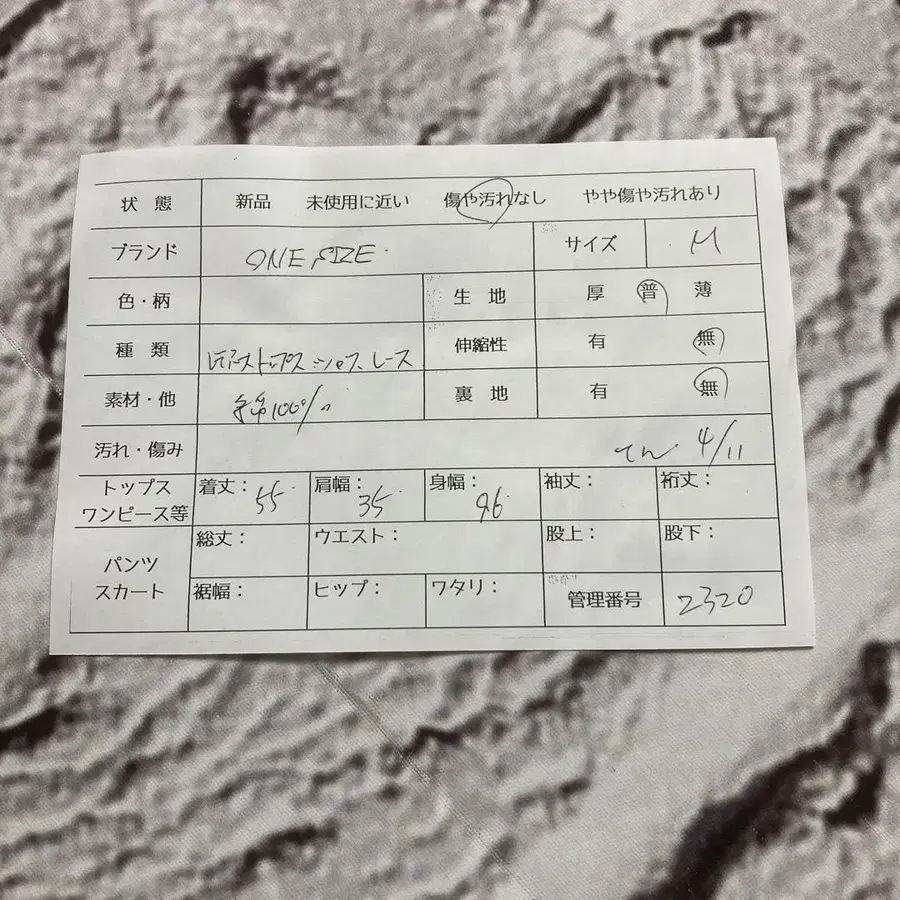 状 態 新品 未使用に近い 傷や汚れなし やや傷や汚れあり
ブランド ONE SIZE サイズ M
色・柄 生 地 厚 普 薄
種 類 レディーストップス シャツ レース 伸縮性 有 無
素材・他 綿100% 裏 地 有 無
汚れ・傷み てん 4/11
トップス
ワンピース等 着丈: 55 肩幅: 35 身幅: 96 袖丈: 裄丈:
パンツ
スカート 総丈: ウエスト: 股上: 股下:
裾幅: ヒップ: ワタリ: 管理番号 2320